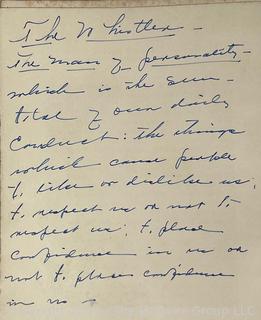 The Whistler —
The man of personality —
which is the sum —
total of our daily
Conduct: the things
which cause people
to like or dislike us;
to respect us or not to
respect us; to place
confidence in us or
not to place confidence
in us —